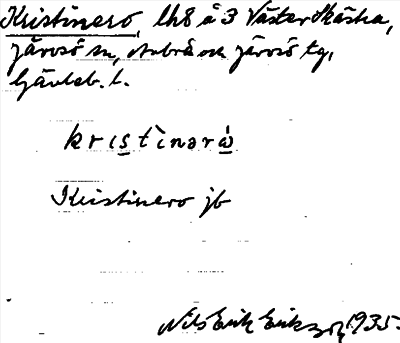 Kristinero, lh8 å 3 Västerskästra,
Järvsö sn, Arbrå och Järvsö tg,
Gävleb. l.
kristìnəró
Kristinero jb
Nils Erik Eriksson 1935.